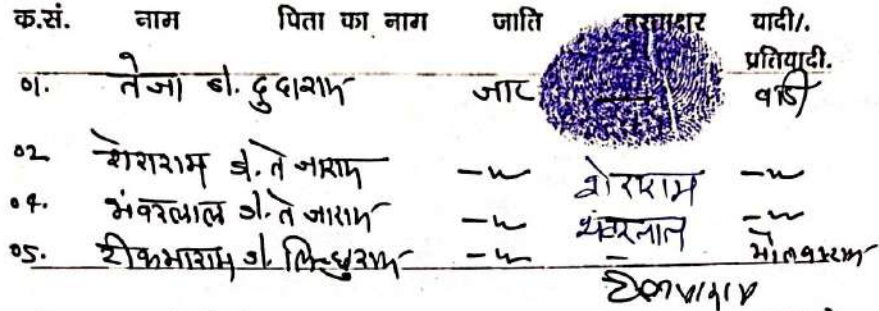 क.सं. नाम पिता का नाम जाति हस्ताक्षर यादी/.
प्रतियादी.
01. तेजा s/o. दुदाराम जाट वादी
02 शेराराम s/o. तेजाराम -"- शेराराम -"-
04. भंवरलाल s/o. तेजाराम -"- भंवरलाल -"-
05. टीकमाराम s/o. -"-